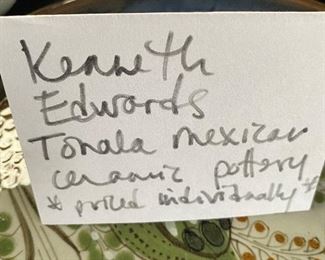 Kenneth
Edwards
Tonala mexican
ceramic pottery
* priced individually *